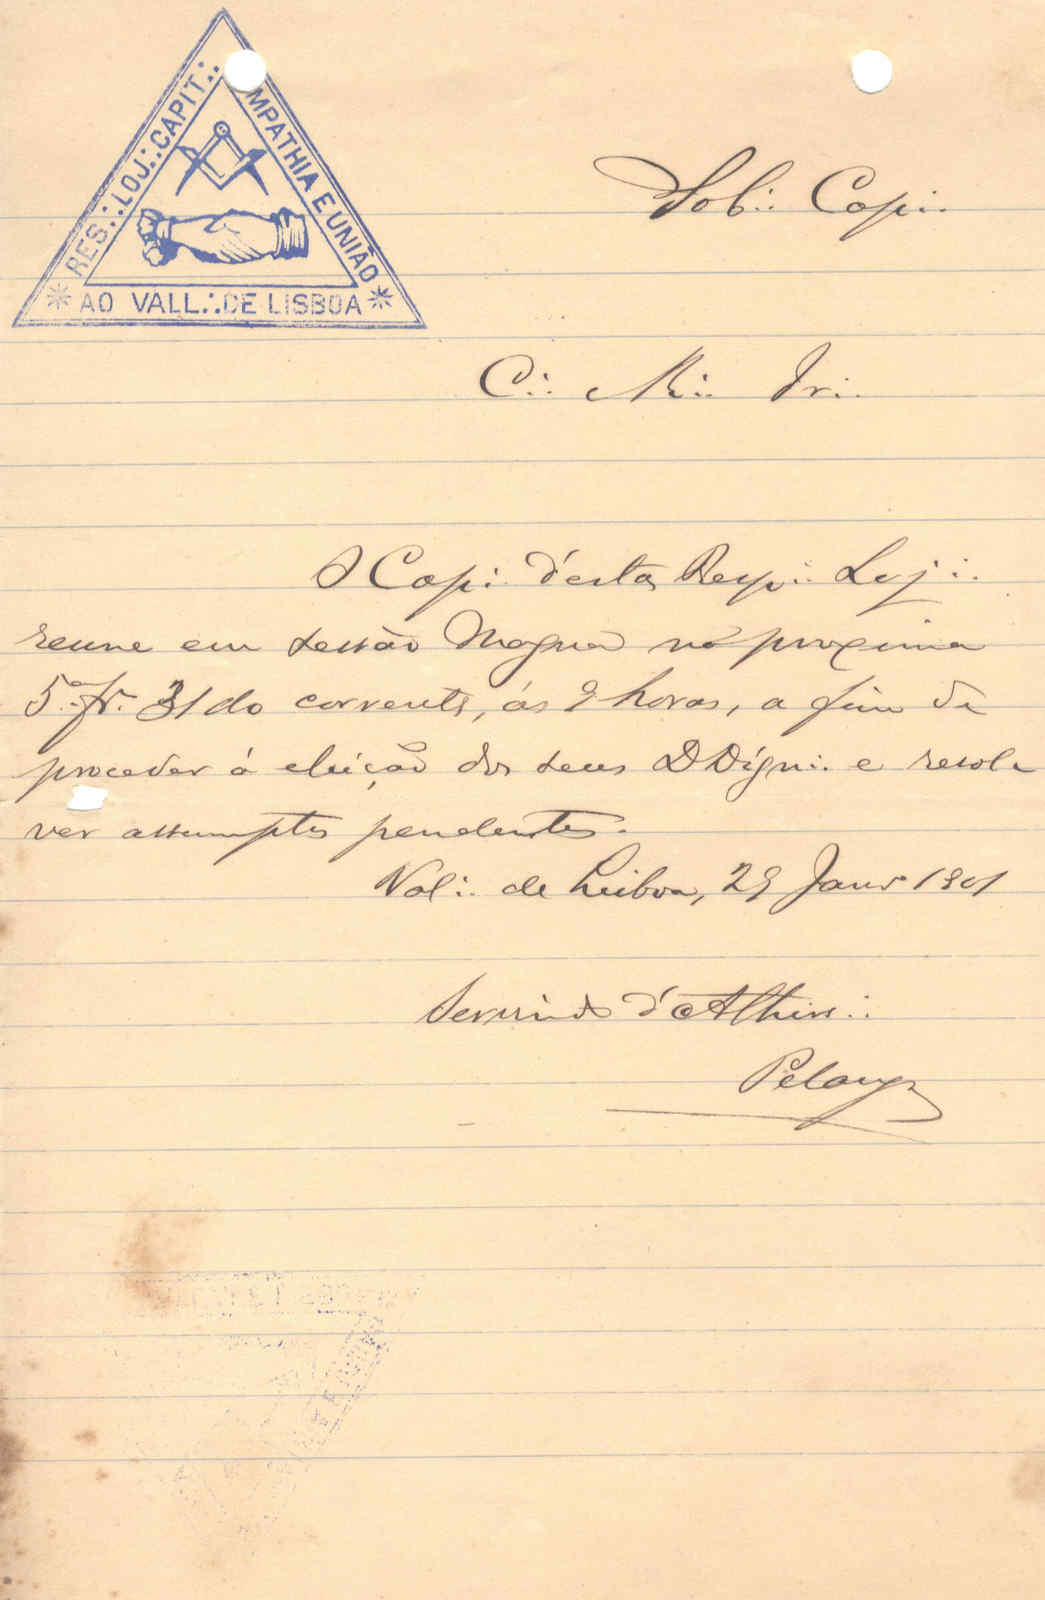 RES∴ LOJ∴ CAPIT∴
MPATHIA E UNIÃO
AO VALL∴ DE LISBOA
Sob∴ Cap∴
C∴ M∴ Ir∴
O Cap∴ d'esta Resp∴ Loj∴
reune em sessão Magna na proxima
5.ª fr.ª 31 do corrente, ás 9 horas, a fim de
proceder á eleição dos seus DDign∴ e resol-
ver assumptos pendentes.
Val∴ de Lisboa, 29 Janro 1901
d'Athen∴